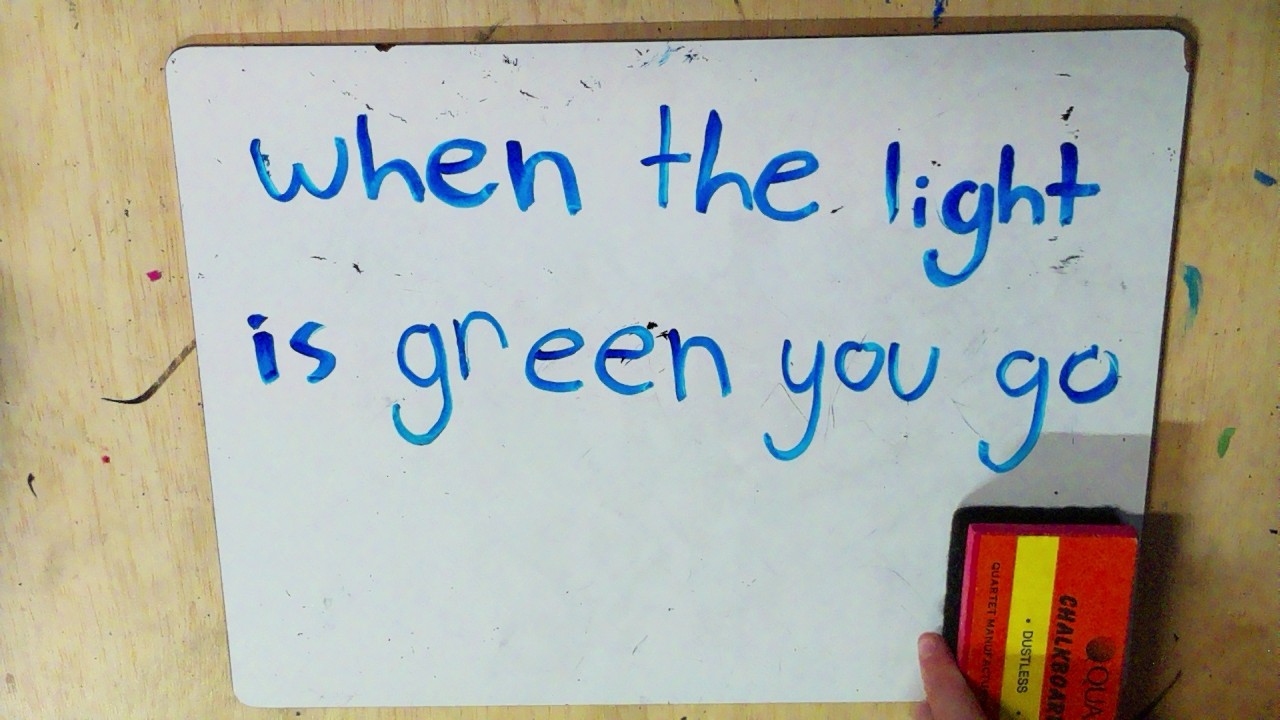 when the light
is green you go
QUARTET MANUFACTU
• DUSTLESS •
CHALKBOAR
QUA